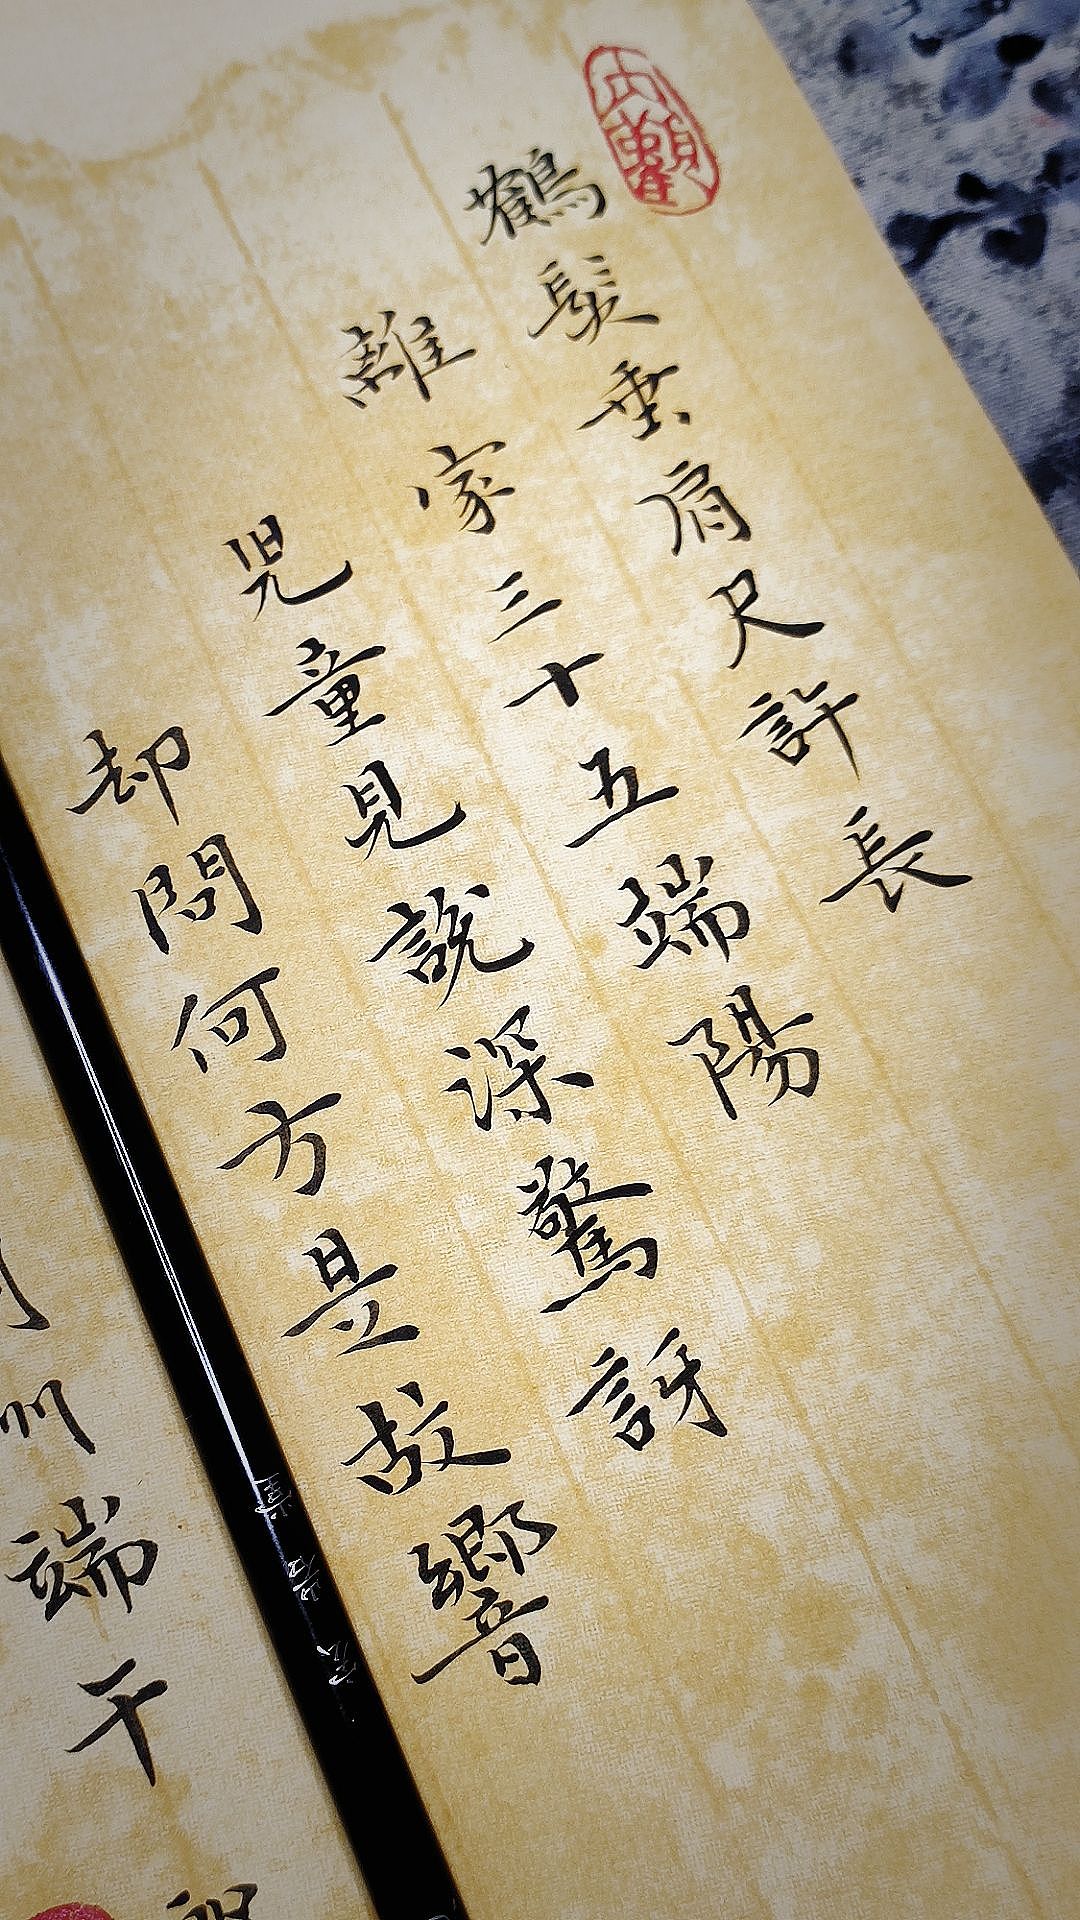 內觀
鶴髮垂肩尺許長
離家三十五端陽
兒童見說深驚訝
却問何方是故響
州端午